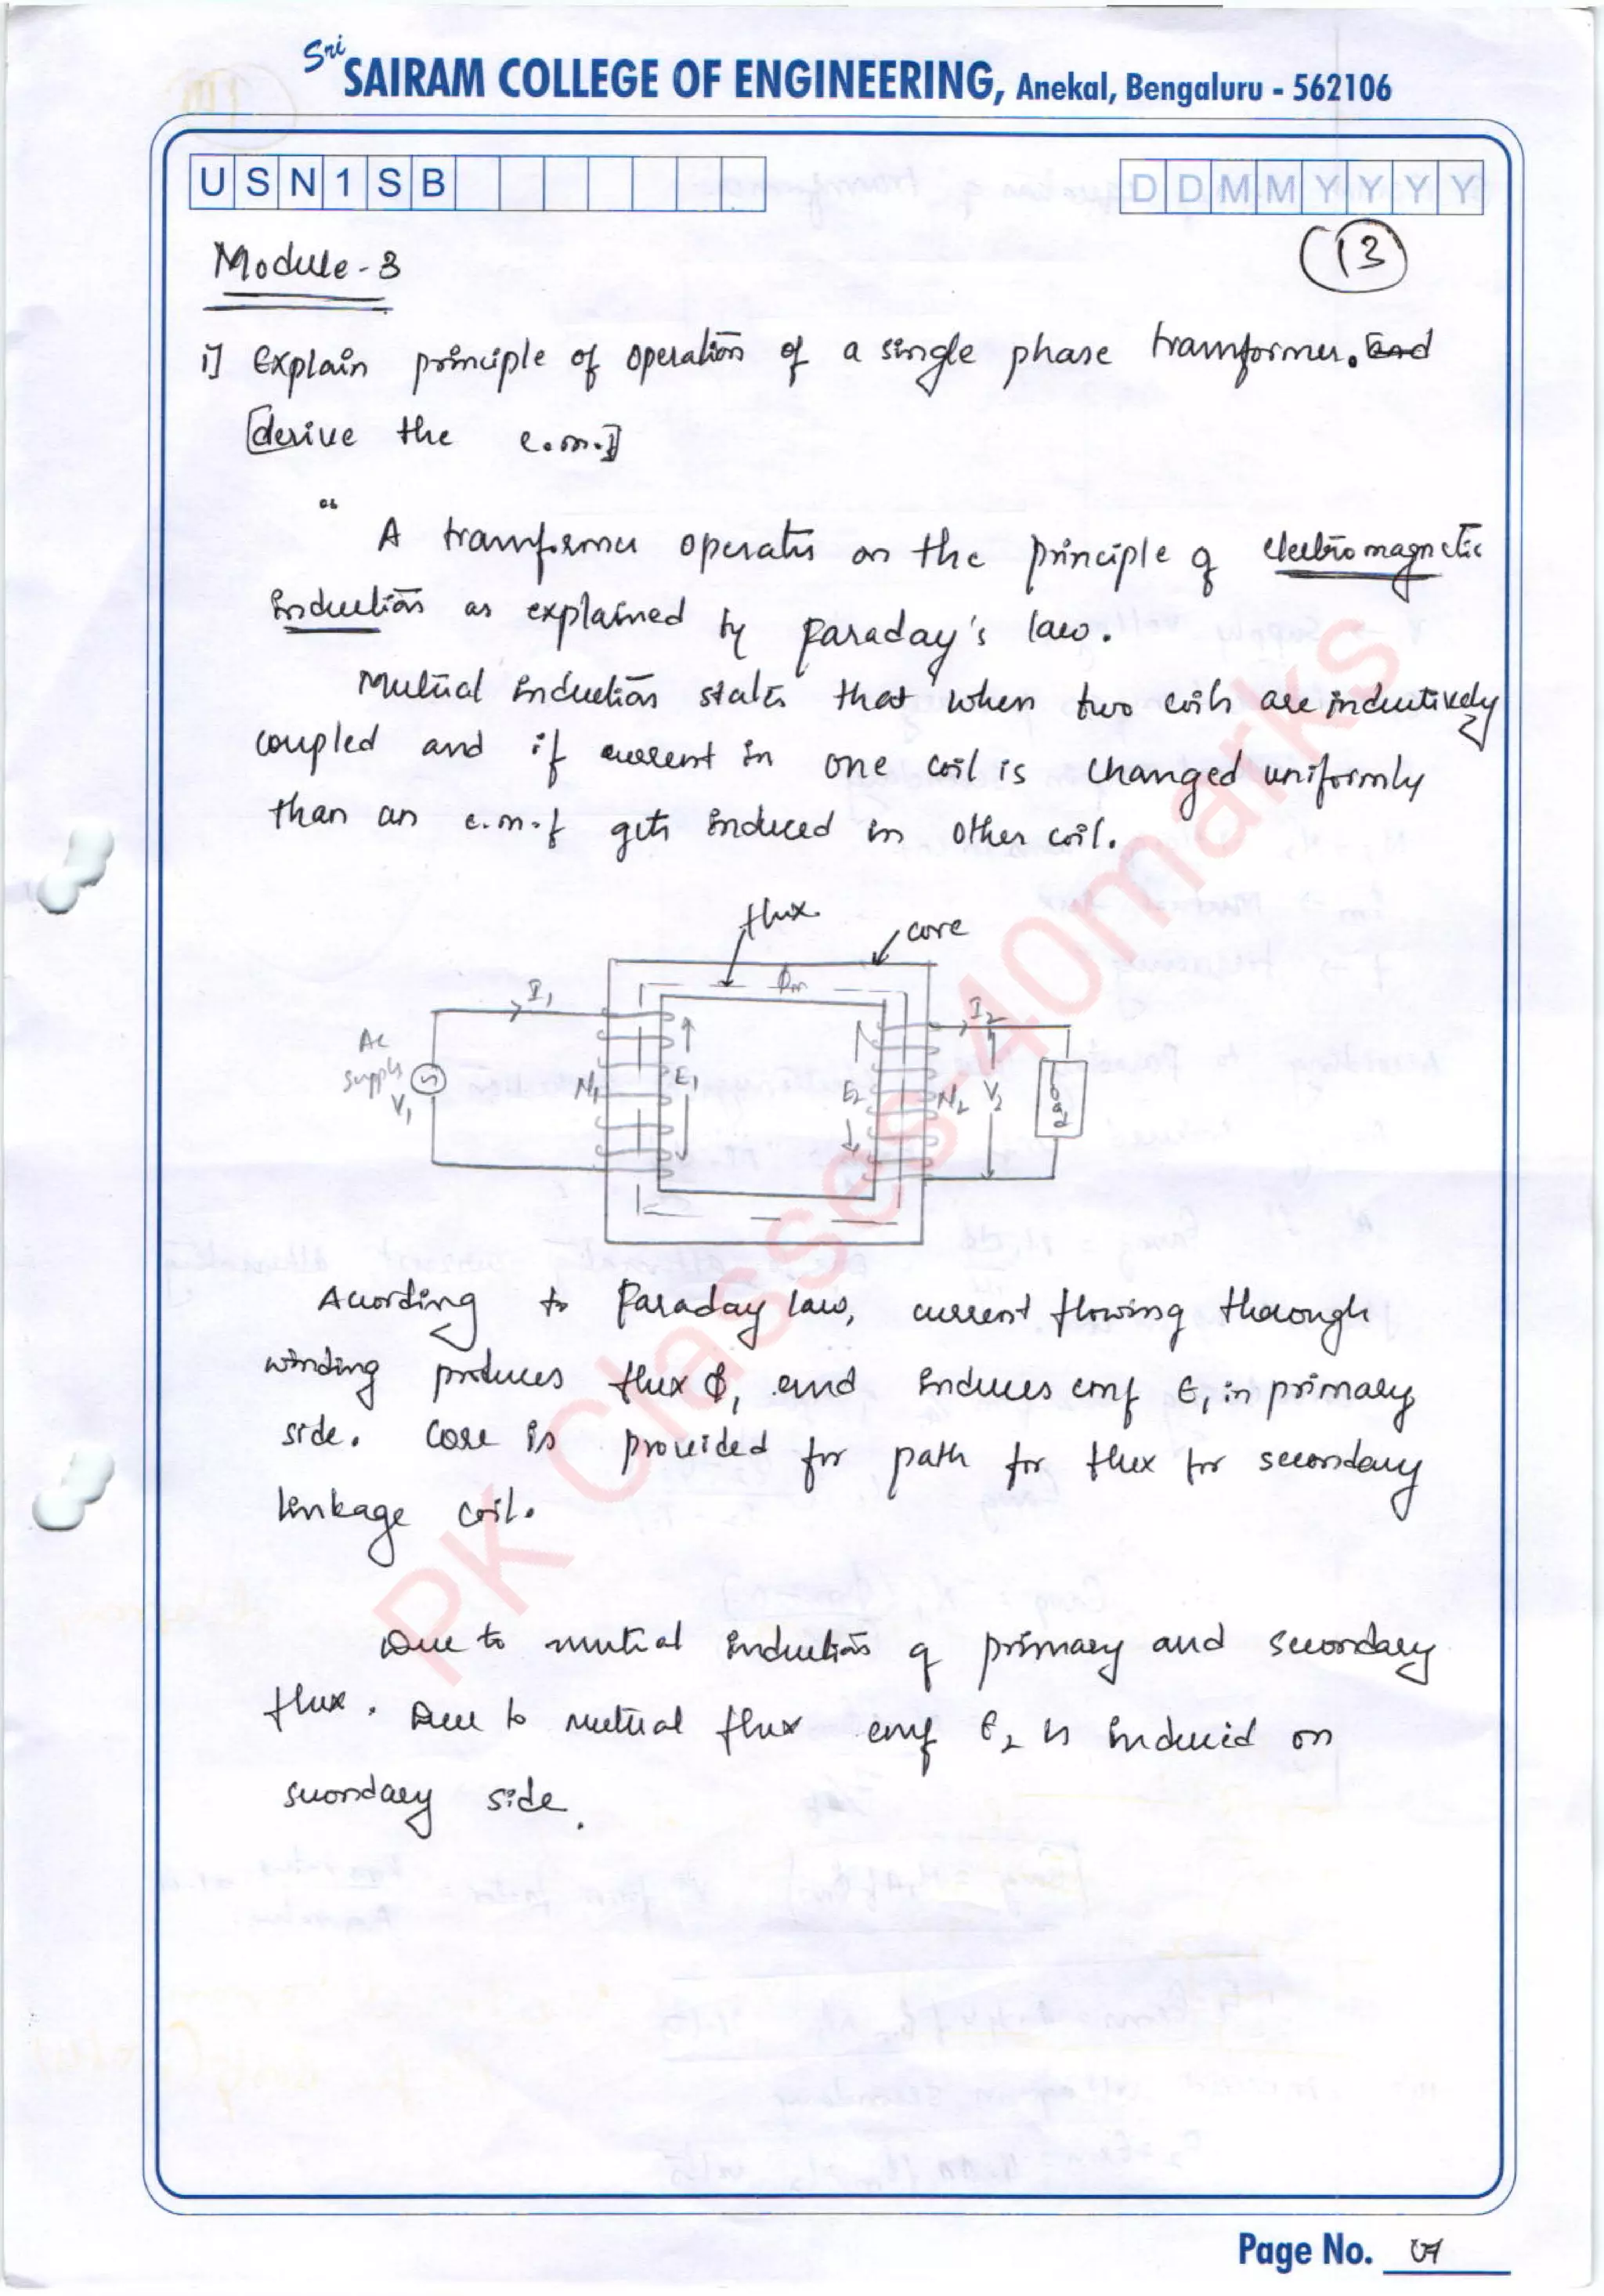 Sri SAIRAM COLLEGE OF ENGINEERING, Anekal, Bengaluru - 562106
U S N 1 S B
D D M M Y Y Y Y
Module-3
13
1] Explain principle of operation of a single phase transformer. And
[derive the e.m.f]
A transformer operates on the principle of electromagnetic
induction as explained by Faraday's law.
Mutual induction states that when two coils are inductively
coupled and if current in one coil is changed uniformly
than an e.m.f gets induced in other coil.
flux
core
ϕm
I1
I2
Ac
supply
V1
N1
E1
E2
N2
V2
Load
According to Faraday law, current flowing through
winding produces flux ϕ, and induces emf E1 in primary
side. Core is provided for path for flux for secondary
linkage coil.
Due to mutual induction of primary and secondary
flux. Due to mutual flux emf E2 is induced on
secondary side.
PK Classes-40marks
Page No.